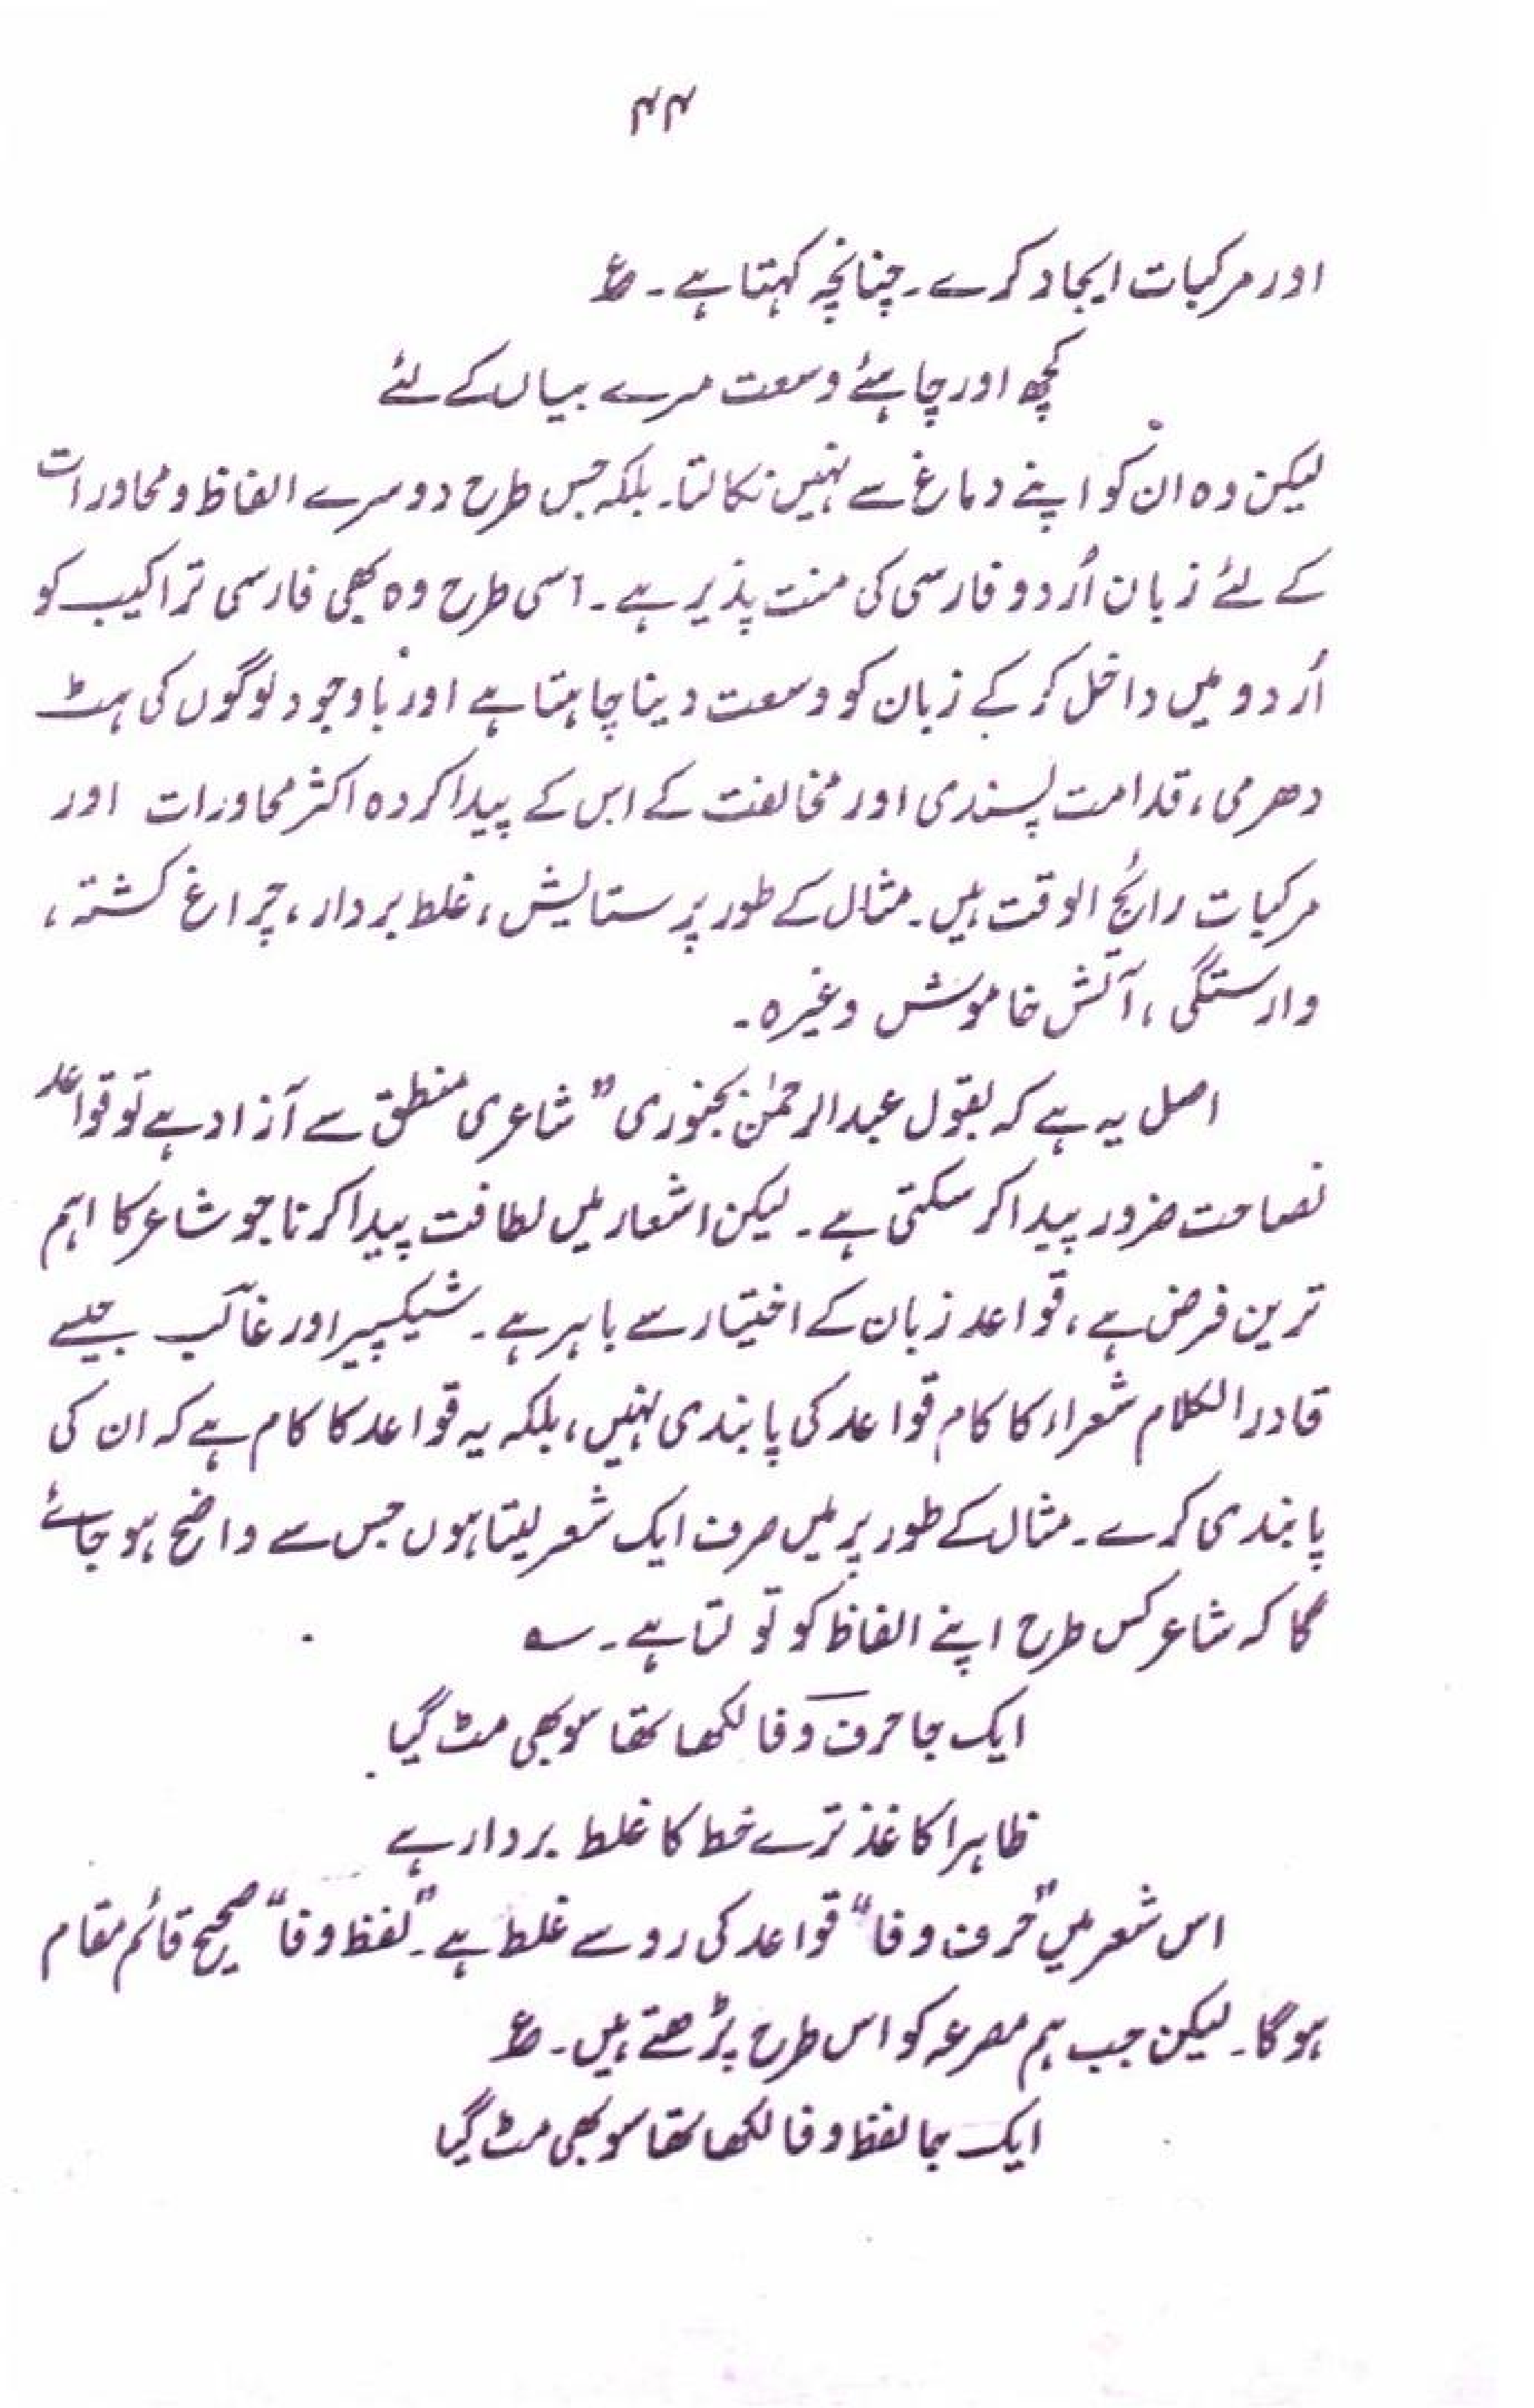 ۴۴
اور مرکبات ایجاد کرے۔ چنانچہ کہتا ہے۔ ع
کچھ اور چاہئے وسعت مرے بیاں کے لئے
لیکن وہ ان کو اپنے دماغ سے نہیں نکالتا۔ بلکہ جس طرح دوسرے الفاظ و محاورات
کے لئے زبان اُردو فارسی کی منت پذیر ہے۔ اسی طرح وہ بھی فارسی تراکیب کو
اُردو میں داخل کر کے زبان کو وسعت دینا چاہتا ہے اور باوجود لوگوں کی ہٹ
دھرمی، قدامت پسندی اور مخالفت کے اس کے پیدا کردہ اکثر محاورات اور
مرکبات رائج الوقت ہیں۔ مثال کے طور پر ستایش، غلط بردار، چراغ کشتہ،
وارستگی، آتش خاموش وغیرہ۔
اصل یہ ہے کہ بقول عبدالرحمٰن بجنوری "شاعری منطق سے آزاد ہے تو قواعد
فصاحت ضرور پیدا کر سکتی ہے۔ لیکن اشعار میں لطافت پیدا کرنا جو شاعر کا اہم
ترین فرض ہے، قواعد زبان کے اختیار سے باہر ہے۔ شیکسپیر اور غالب جیسے
قادر الکلام شعراء کا کام قواعد کی پابندی نہیں، بلکہ یہ قواعد کا کام ہے کہ ان کی
پابندی کرے۔ مثال کے طور پر میں صرف ایک شعر لیتا ہوں جس سے واضح ہو جائے
گا کہ شاعر کس طرح اپنے الفاظ کو تولتا ہے۔ ؎
ایک جا حرف وفا لکھا تھا سو بھی مٹ گیا
ظاہرا کاغذ ترے خط کا غلط بردار ہے
اس شعر میں "حرف وفا" قواعد کی رو سے غلط ہے۔ "لفظ وفا" صحیح قائم مقام
ہوگا۔ لیکن جب ہم مصرعہ کو اس طرح پڑھتے ہیں۔ ع
ایک جا لفظ وفا لکھا تھا سو بھی مٹ گیا